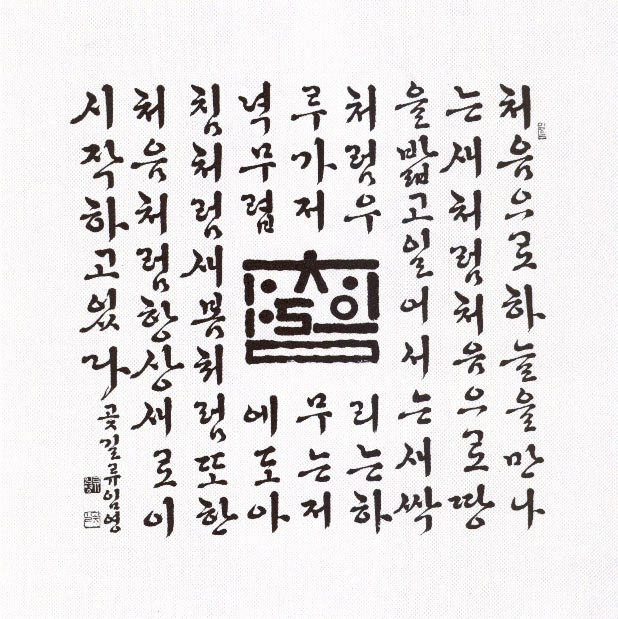 처음으로하늘을만나
는새처럼처음으로땅
을밟고일어서는새싹
처럼우리는하
루가저무는저
녁무렵에도아
침처럼새봄처럼또한
처음처럼항상새로이
시작하고있다
류임영